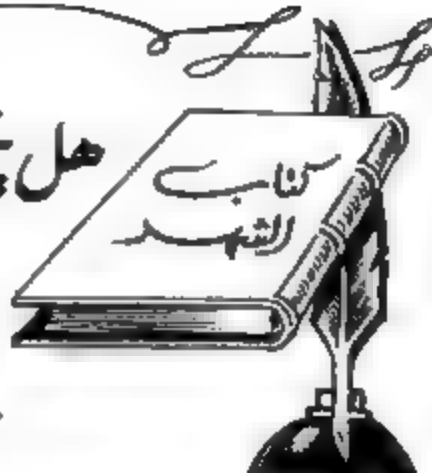 هل
كتاب
الشهر